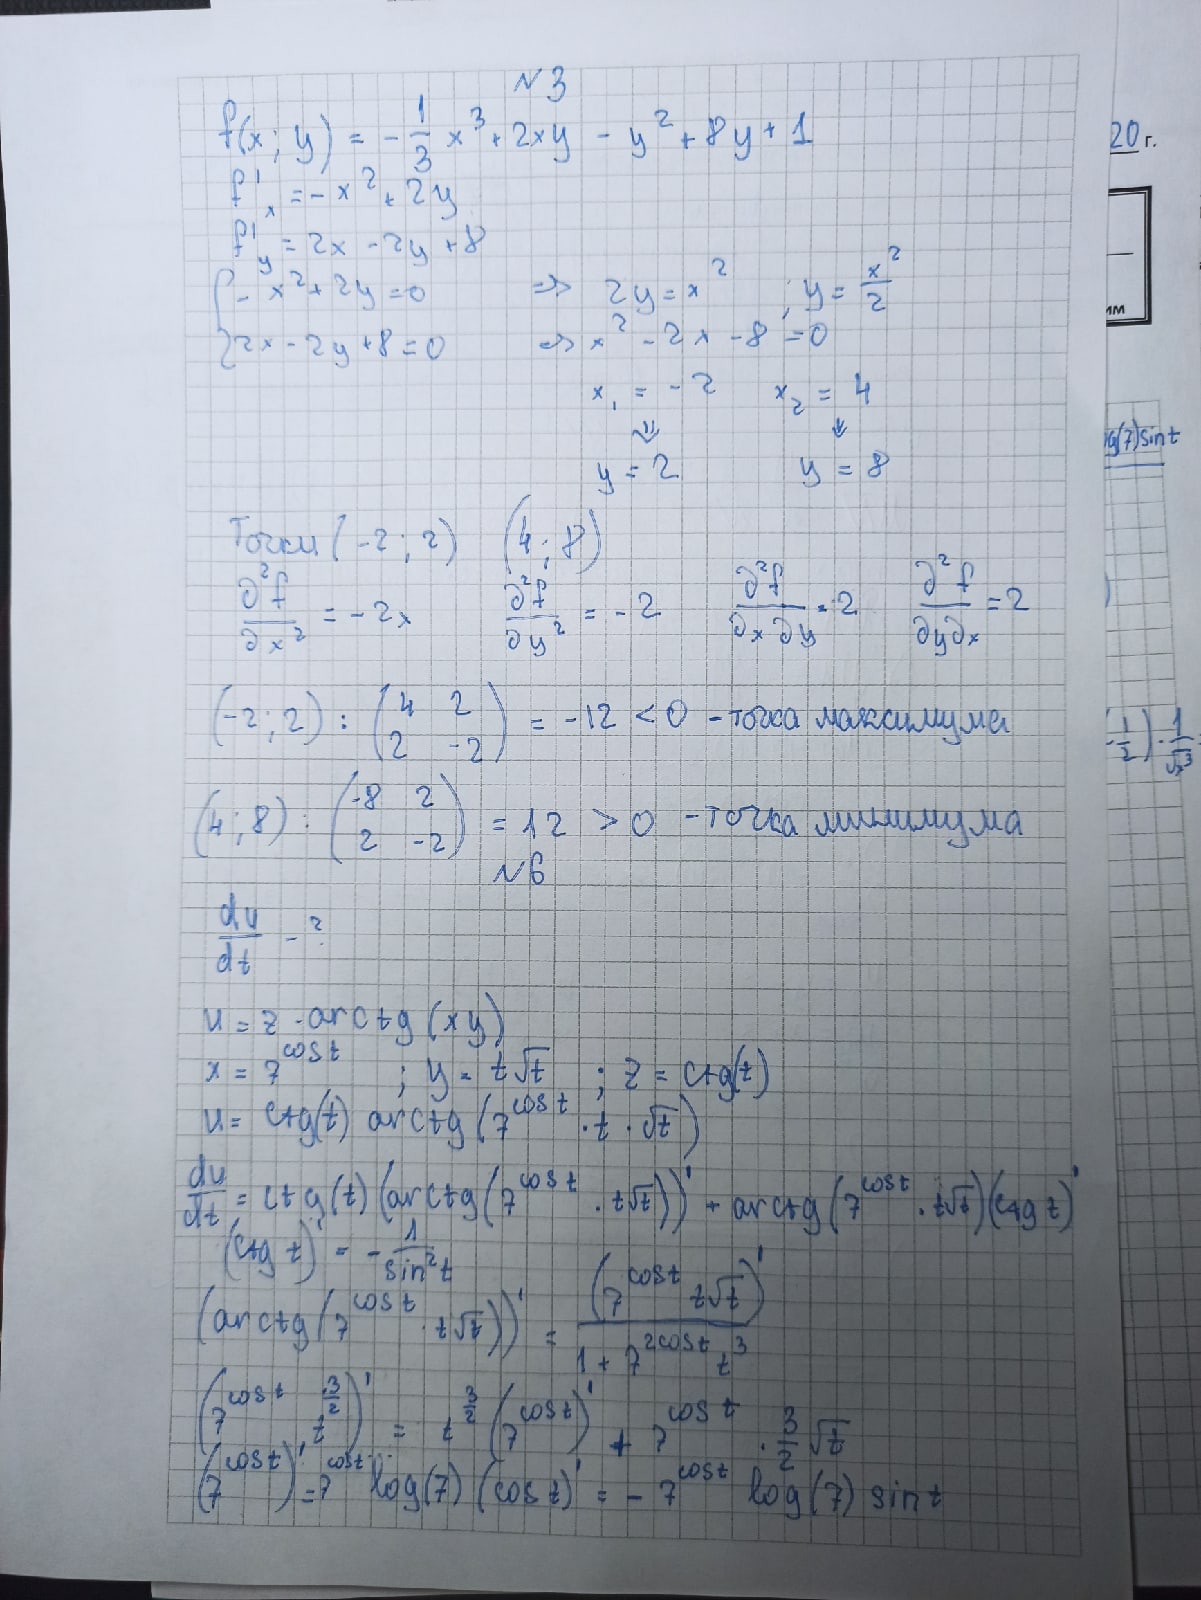 N3
f(x; y) = -1/3 x³ + 2xy - y² + 8y + 1
f'ₓ = -x² + 2y
f'ᵧ = 2x - 2y + 8
{ -x² + 2y = 0 ⇒ 2y = x² ; y = x²/2
2x - 2y + 8 = 0 ⇒ x² - 2x - 8 = 0
x₁ = -2 x₂ = 4
⇓ ⇓
y = 2 y = 8
Точки (-2; 2) (4; 8)
∂²f/∂x² = -2x ∂²f/∂y² = -2 ∂²f/∂x∂y = 2 ∂²f/∂y∂x = 2
(-2; 2) : (4 2
2 -2) = -12 < 0 - точка максимума
(4; 8) : (-8 2
2 -2) = 12 > 0 - точка минимума
N6
du/dt - ?
u = z · arctg(xy)
x = 7^cos t ; y = t√t ; z = ctg(t)
u = ctg(t) arctg(7^cos t · t · √t)
du/dt = ctg(t) (arctg(7^cos t · t√t))' + arctg(7^cos t · t√t)(ctg t)'
(ctg t)' = -1/sin²t
(arctg(7^cos t · t√t))' = (7^cos t t√t)'/(1 + 7^2cos t t³)
(7^cos t · t^3/2)' = t^3/2 (7^cos t)' + 7^cos t · 3/2 √t
(7^cos t)' = 7^cos t log(7) (cos t)' = -7^cos t log(7) sin t
20 г.
им
og(7)sin t
1/2) · 1/√x³